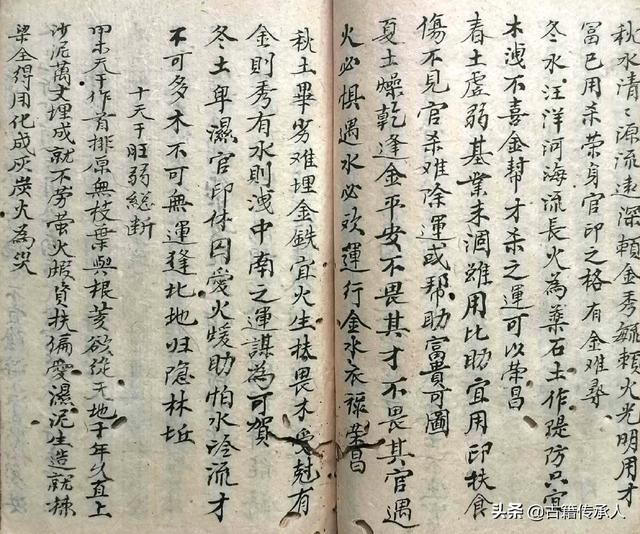 秋水清〻源流远深賴金秀毓賴火光明用才
冨已用杀荣身官印之格有金难尋
冬水汪洋河海流長火為藥石土作堤防只宜
木洩不喜金幫才杀之運可以荣昌
春土虛弱基業未凋雖用比助宜用印扶食
傷不見官杀难除運或帮助富貴可圖
夏土燥乾逢金平安不畏其才不畏其官遇
火必惧遇水必欢運行金水衣祿荣昌
秋土畢劣难埋金鉄宜火生扶畏木受尅有
金則秀有水則洩中南之運謀為可賀
冬土卑濕官印休囚愛火煖助怕水泾流才
不可多木不可無運逢北地归隐林坵
十天干旺弱總断
甲木天干作首排原無枝葉與根荄欲從天地千年久直上
沙泥萬丈埋成就不劳萤火煅資扶偏愛濕泥生造就棟
梁全得用化成灰炭火為災
头条 @古籍传承人